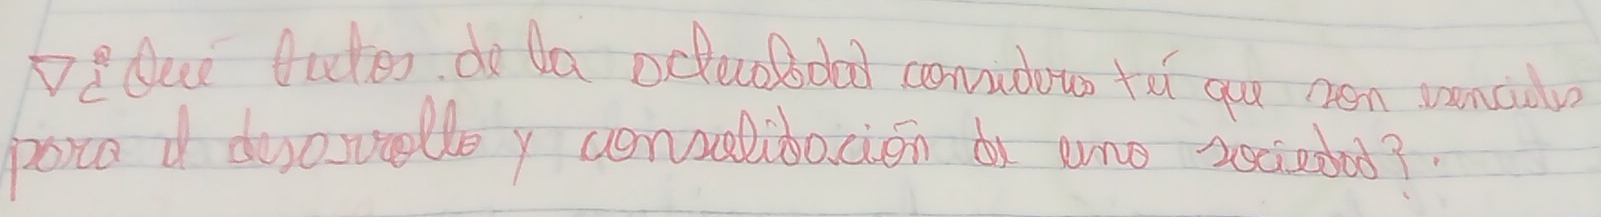 ¿Qué de la actualidad consideras tú que son esenciales
para el desarrollo y consolidación de una sociedad?.